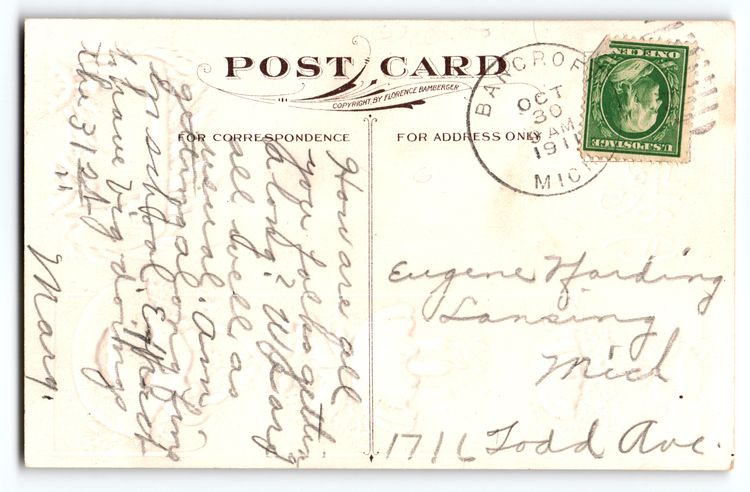 POST CARD
COPYRIGHT, BY FLORENCE BAMBERGER
FOR CORRESPONDENCE
FOR ADDRESS ONLY
BANCROFT
OCT
30
AM
1911
MICH
U.S. POSTAGE
ONE CENT
How are all
you folks getting
along? We are
all well as
usual. Am
getting along fine
in school. Expect
to have big doings
the 31st
Mary.
Eugene Harding
Lansing
Mich
1716 Todd Ave.